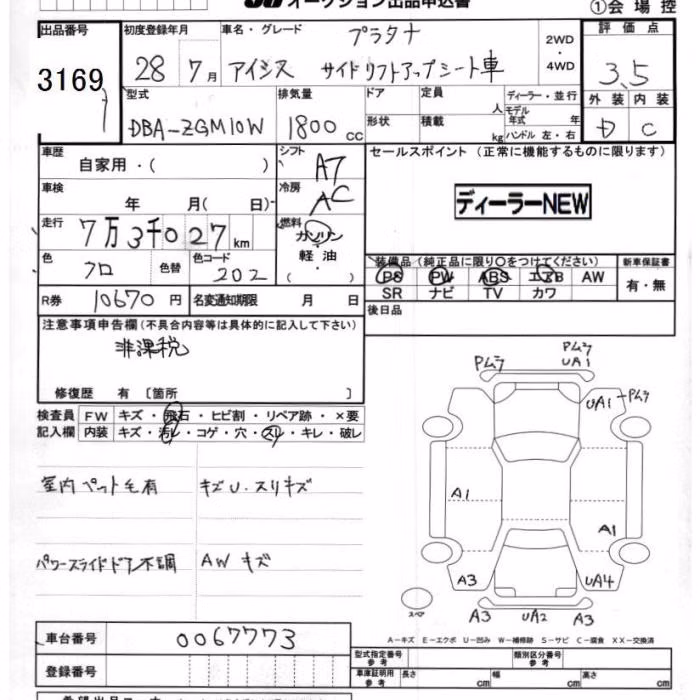 オークション出品申込書 ①会場控
出品番号 初度登録年月 車名・グレード プラタナ 2WD・4WD 評価点
3169 28 7月 アイシス サイドリフトアップシート車 3.5
型式 排気量 ドア 定員 人 ディーラー・並行 外装 内装
DBA-ZGM10W 1800cc 形状 積載 kg モデル年式 年 ハンドル 左・右 D C
車歴 シフト セールスポイント (正常に機能するものに限ります)
自家用・( ) A7
車検 年 月( 日) 冷房 AC ディーラーNEW
走行 7万3千027km 燃料 ガソリン・軽油 ( )
装備品 (純正品に限り〇をつけてください) 新車保証書
色 クロ 色替 色コード 202 PS PW ABS エアB AW 有・無
SR ナビ TV カワ
R券 10670円 名変通知期限 月 日 後日品
注意事項申告欄 (不具合内容等は具体的に記入して下さい)
非課税
修復歴 有 〔箇所 〕
検査員 FW キズ・飛石・ヒビ割・リペア跡・×要
記入欄 内装 キズ・汚レ・コゲ・穴・スレ・キレ・破レ
室内ペット毛有 キズU.スリキズ
パワースライドドア不調 AW キズ
Pムラ Pムラ
UA1
UA1-Pムラ
A1
A1
A3 UA4
スペア
A3 UA2 A3
A-キズ E-エクボ U-凹み W-補修跡 S-サビ C-腐食 XX-交換済
車台番号 0067773
型式指定番号 参考 類別区分番号 参考
登録番号 車庫証明用 参考 長さ cm 幅 cm 高さ cm